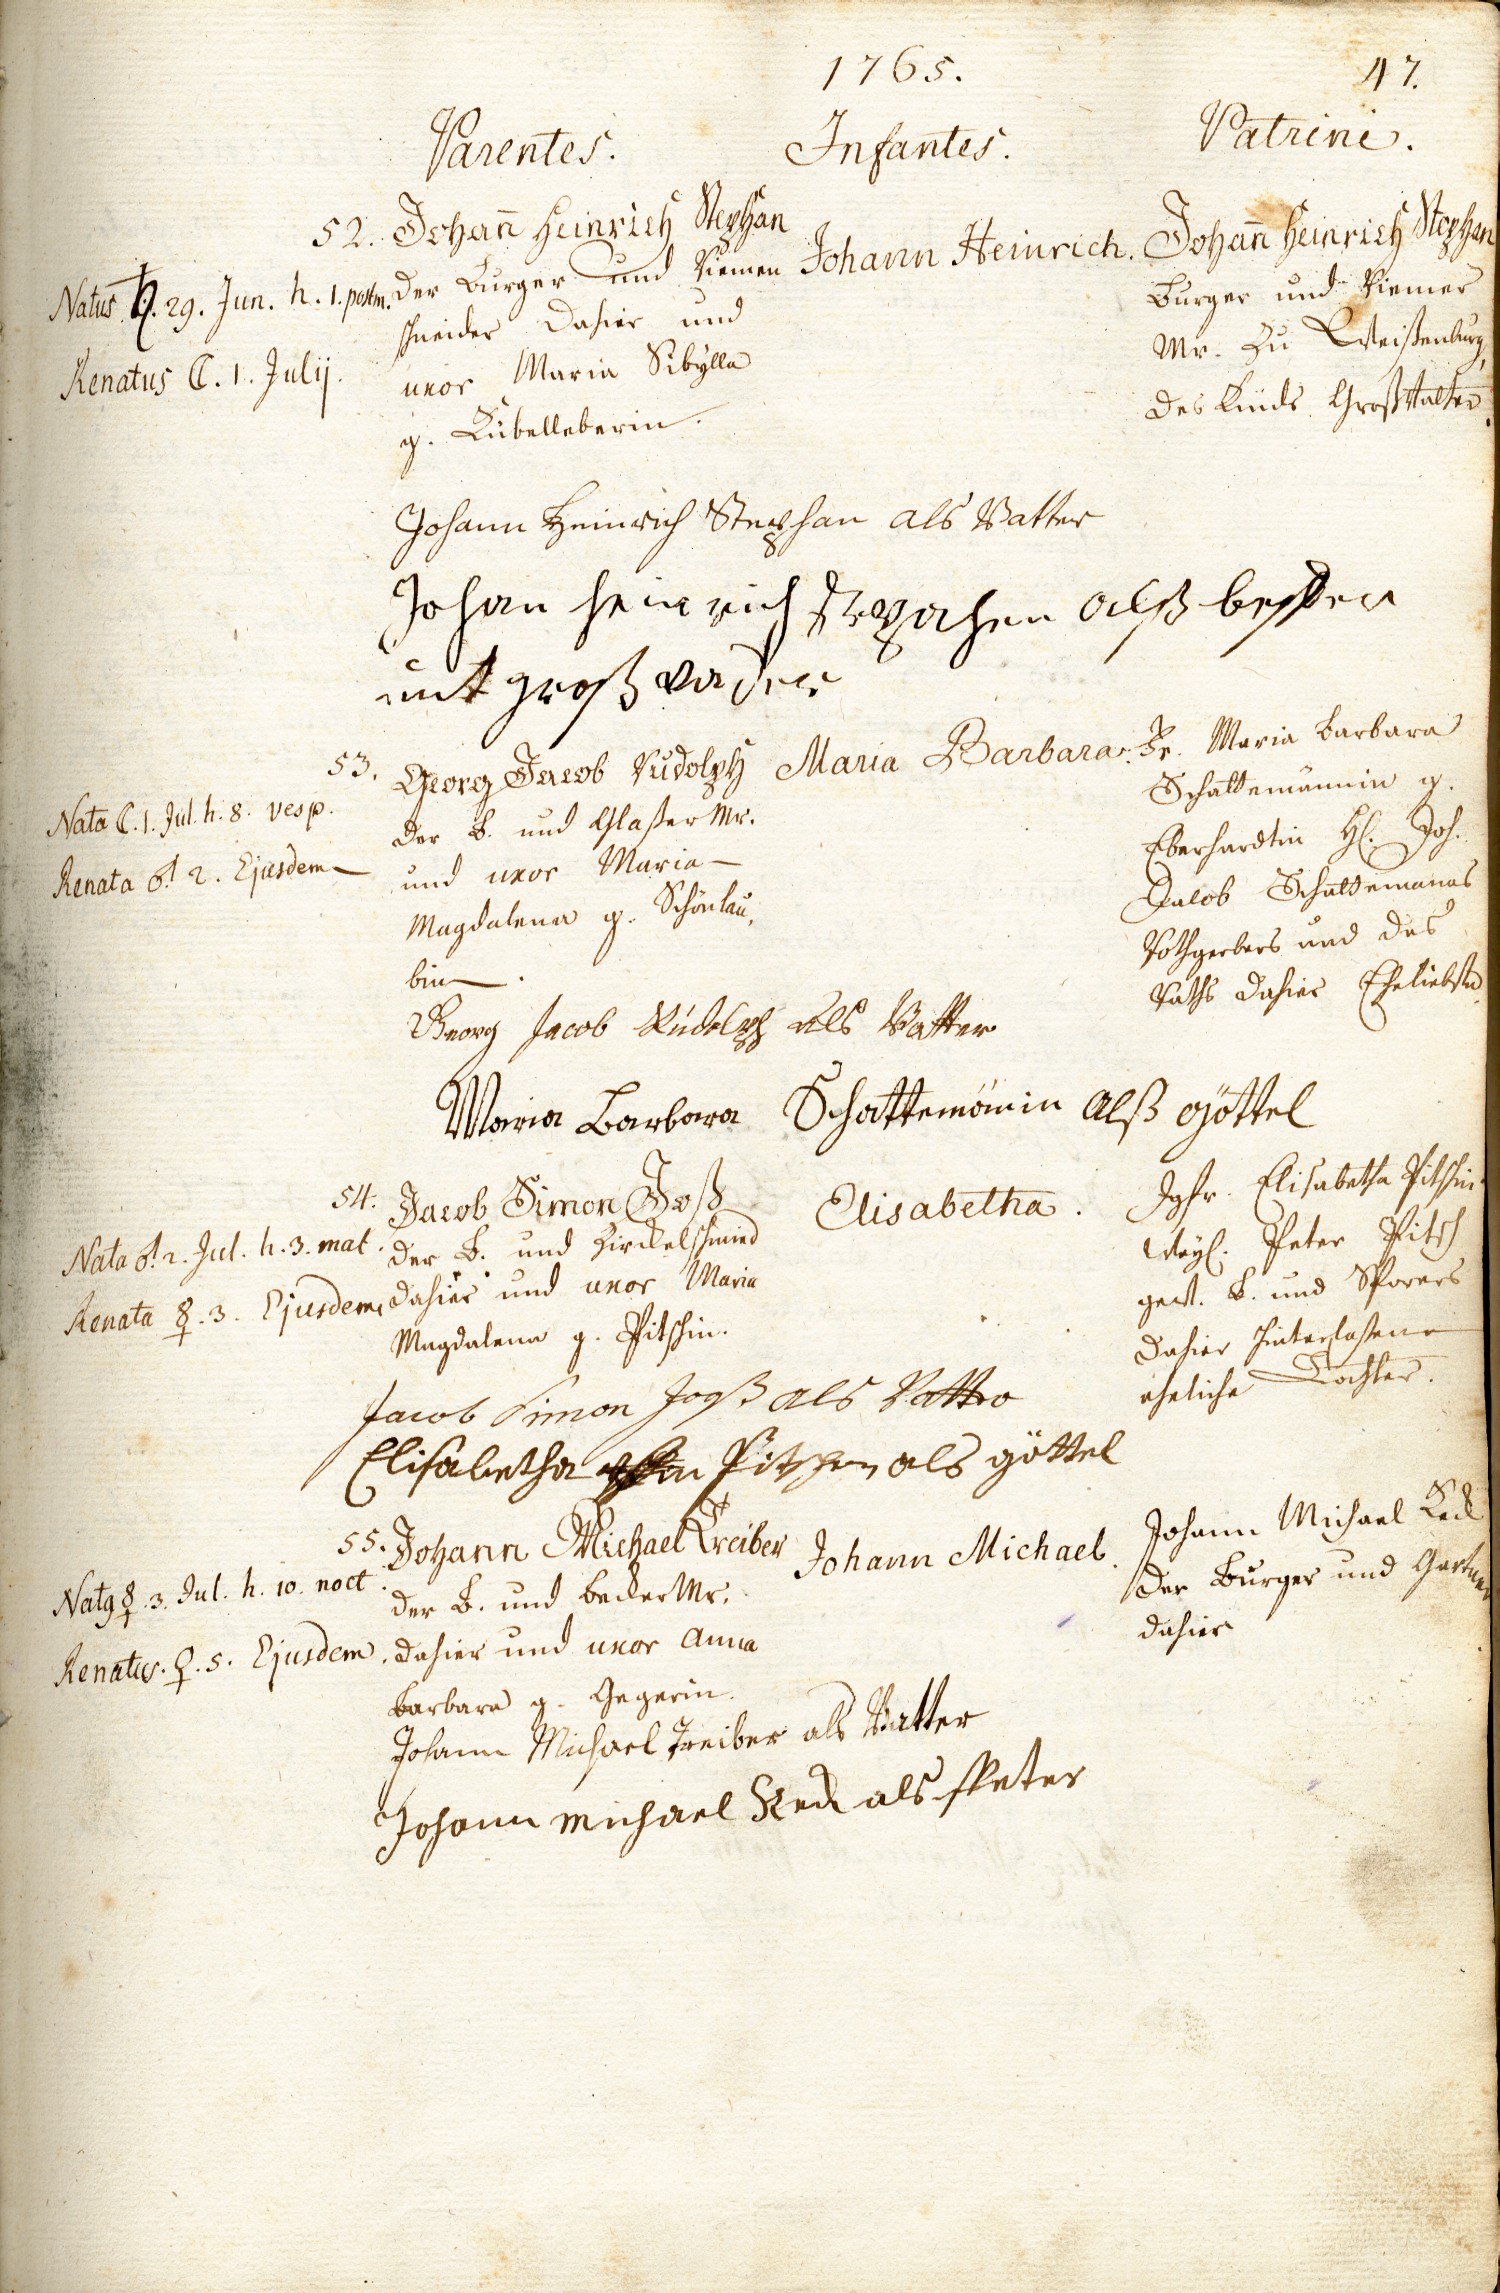 1765.
47.
Parentes.
Infantes.
Patrini.
52.
Natus ♄. 29. Jun. h. 1. postm.
Renatus ☾. 1. Julij.
Johan̄ Heinrich Stephan
der Burger und Riemen
schneider dahier und
uxor Maria Sibylla
g. Kübelleberin.
Johann Heinrich.
Johan̄ Heinrich Stephan
Burger und Riemer
Mr. zu Weißenburg,
des Kinds Großvatter.
Johann Heinrich Stephan als Vatter
Johan heinrich als
und groß vader
53.
Nata ☾. 1. Jul. h. 8. vesp.
Renata ♂. 2. Ejusdem
Georg Jacob Rudolph
der B. und Glaßer Mr.
und uxor Maria
Magdalena g. Schönlau,
bin.
Maria Barbara.
Fr. Maria Barbara
Schattemännin g.
Eberhardtin H. Joh.
Jacob Schattemanns
Rothgerbers und des
Raths dahier Eheliebste.
Georg Jacob Rudolph als Vatter
Maria Barbara Schattemänin alß göttel
54.
Nata ♂. 2. Jul. h. 3. mat.
Renata ☿. 3. Ejusdem.
Jacob Simon Joß
der B. und Zirckelschmied
dahier und uxor Maria
Magdalena g. Pitschin.
Elisabetha.
Jgfr. Elisabetha Pitschin
Weyl. Peter Pitsch
gew. B. und Sporers
dahier hinterlaßene
eheliche Tochter.
Jacob Simon Joß als Vatter
Elisabetha Pitschen als göttel
55.
Natus ☿. 3. Jul. h. 10. noct.
Renatus. ♀. 5. Ejusdem.
Johann Michael Treiber
der B. und becker Mr.
dahier und uxor Anna
Barbara g. Gegerin.
Johann Michael.
Johann Michael Keck
der Burger und Gartner
dahier
Johann Michael Treiber als Vatter
Johann michael Keck als Peter